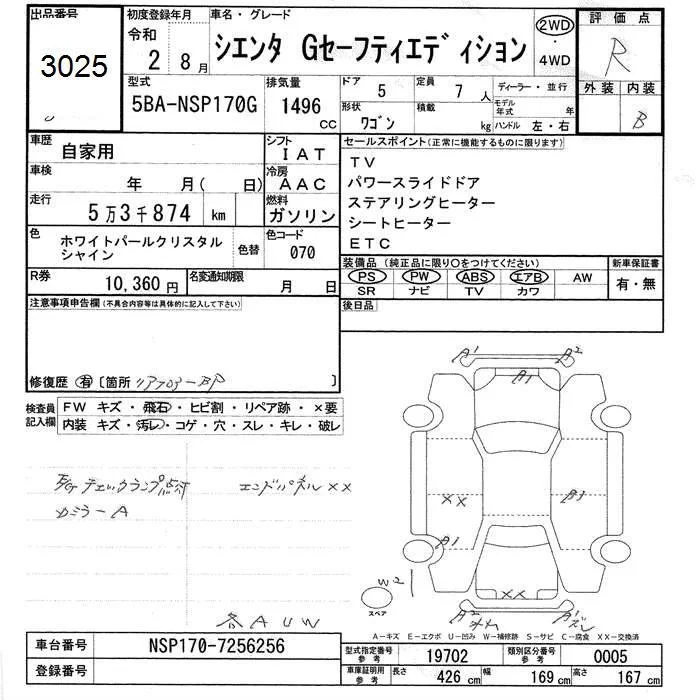 出品番号
3025
初度登録年月
令和
2 8月
車名・グレード
シエンタ Gセーフティエディション
2WD
・
4WD
評価点
R
外装 内装
B
型式
5BA-NSP170G
排気量
1496
CC
ドア 5
定員 7 人
形状
ワゴン
積載
kg
ディーラー・並行
モデル年式 年
ハンドル 左・右
車歴
自家用
シフト
IAT
車検
年 月( 日)
冷房
AAC
走行
5万3千874 km
燃料
ガソリン
色
ホワイトパールクリスタル
シャイン
色替
色コード
070
R券
10,360円
名変通知期限
月 日
セールスポイント(正常に機能するものに限ります)
TV
パワースライドドア
ステアリングヒーター
シートヒーター
ETC
装備品(純正品に限り○をつけてください)
PS PW ABS エアB AW
SR ナビ TV カワ
新車保証書
有・無
後日品
注意事項申告欄(不具合内容等は具体的に記入して下さい)
修復歴 有 [箇所 リアフロアーBP ]
検査員
記入欄
FW キズ・飛石・ヒビ割・リペア跡・×要
内装 キズ・汚レ・コゲ・穴・スレ・キレ・破レ
エンドパネル××
カミラーA
各AUW
A1 A2
A1
××
B3
A1
W2
スペア
××
A2
A1
A-キズ E-エクボ U-凹み W-補修跡 S-サビ C-腐食 XX-交換済
車台番号
NSP170-7256256
登録番号
型式指定番号
参考
19702
類別区分番号
参考
0005
車庫証明用
参考
長さ 426 cm
幅 169 cm
高さ 167 cm